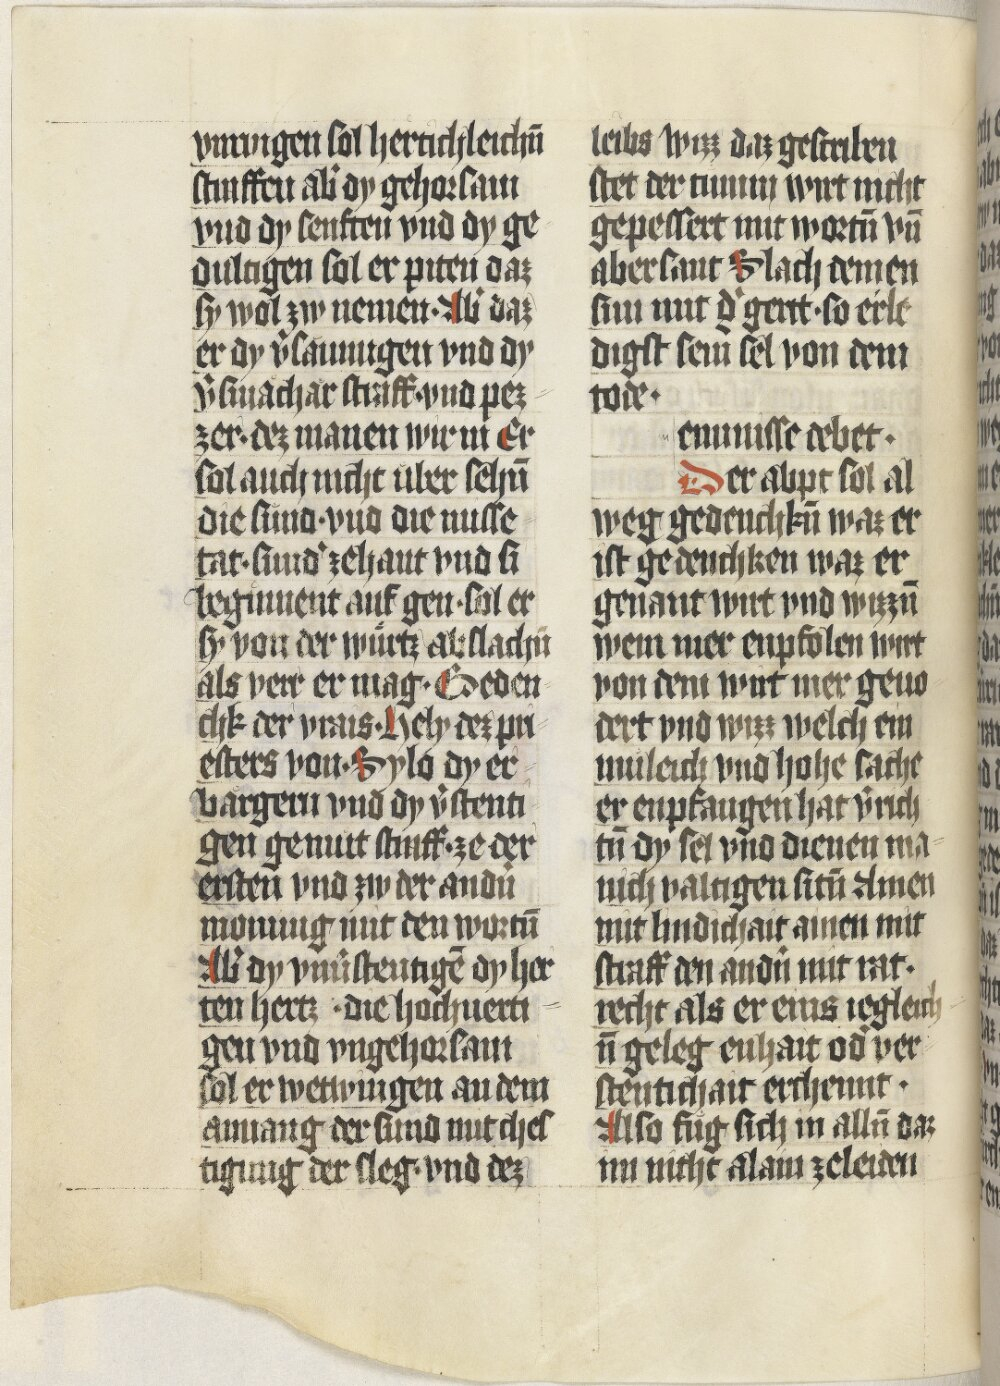 vnruigen sol hertichleichn̄
straffen ab̾ dy gehorsam
vnd dy senften vnd dy ge
dultigen sol er piten daz
sy wol zw nemen · Ab̾ daz
er dy v̾saumigen vnd dy
v̾smachar straff · vnd pez
zer · dez manen wir in Er
sol auch nicht uber sehn̄
die sund · vnd die misse
tat · sund̾ zehant vnd si
beginnent auf gen · sol er
sy von der wuͤrtz abslachn̄
als verr er mag · Geden
chk der vrais · Hely dez pri
esters von · Sylo dy er
bargern vnd dy v̾stenti
gen gemuͤt straff · ze der
ersten vnd zw der andn̄
monung mit den wortn̄
Ab̾ dy vnu̾stentigē dy her
ten hertz · die hochuerti
gen vnd vngehorsam
sol er wetwingen an dem
anuang der sund mit ches
tigung der sleg · vnd dez
leibs wizz daz gescriben
stet der tumm wirt nicht
gepessert mit wortn̄ vn̄
aber sant Slach deinen
sun mit d̾ gertt · so erle
digst sein sel von dem
tode ·
eminisse debet ·
Der abpt sol al
weg gedenchkn̄ waz er
ist gedenchken waz er
genant wirt vnd wizzn̄
wem mer enpfolen wirt
von dem wirt mer geuo
dert vnd wizz welch ein
muleich vnd hohe sache
er enpfangen hat v̾rich
tn̄ dy sel vnd dienen ma
nich valtigen sitn̄ Ainen
mit lindichait ainen mit
straff den andn̄ mit rat ·
recht als er eins iegleich
n̄ geleg enhait od̾ ver
stentichait erchennt ·
Also fug sich in alln̄ daz
im nicht alain zeleiden